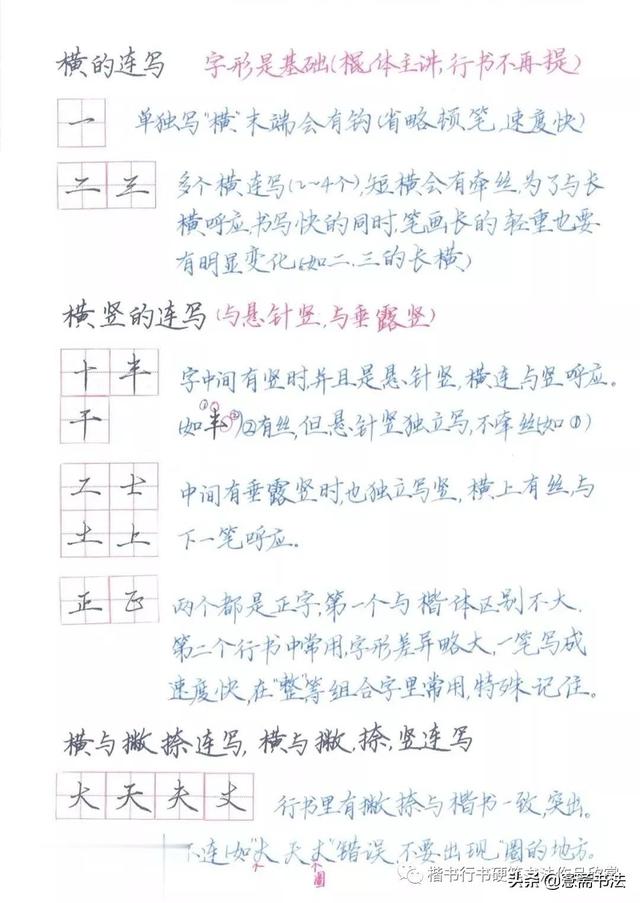 横的连写 字形是基础(楷体主讲,行书不再提)
一 单独写"横"末端会有钩(省略顿笔,速度快)
二 三 多个横连写(2~4个),短横会有牵丝,为了与长
横呼应,书写快的同时,笔画长的轻重也要
有明显变化(如二、三的长横)
横竖的连写(与悬针竖,与垂露竖)
十 半 字中间有竖时,并且是悬针竖,横连与竖呼应。
干 (如①半②)②有丝,但悬针竖独立写,不牵丝(如①)
工 士 中间有垂露竖时,也独立写竖,横上有丝,与
土 上 下一笔呼应。
正 正 两个都是正字,第一个与楷体区别不大.
第二个行书中常用,字形差异略大,一笔写成
速度快,在"整"等组合字里常用,特殊记住。
横与撇捺连写,横与撇,捺,竖连写
大 天 夫 丈 行书里有撇捺与楷书一致,突出。
不连(如"大 天 丈"错误,不要出现"圈的地方。
个圈
楷书行书硬笔书法作品欣赏
头条@慧斋书法